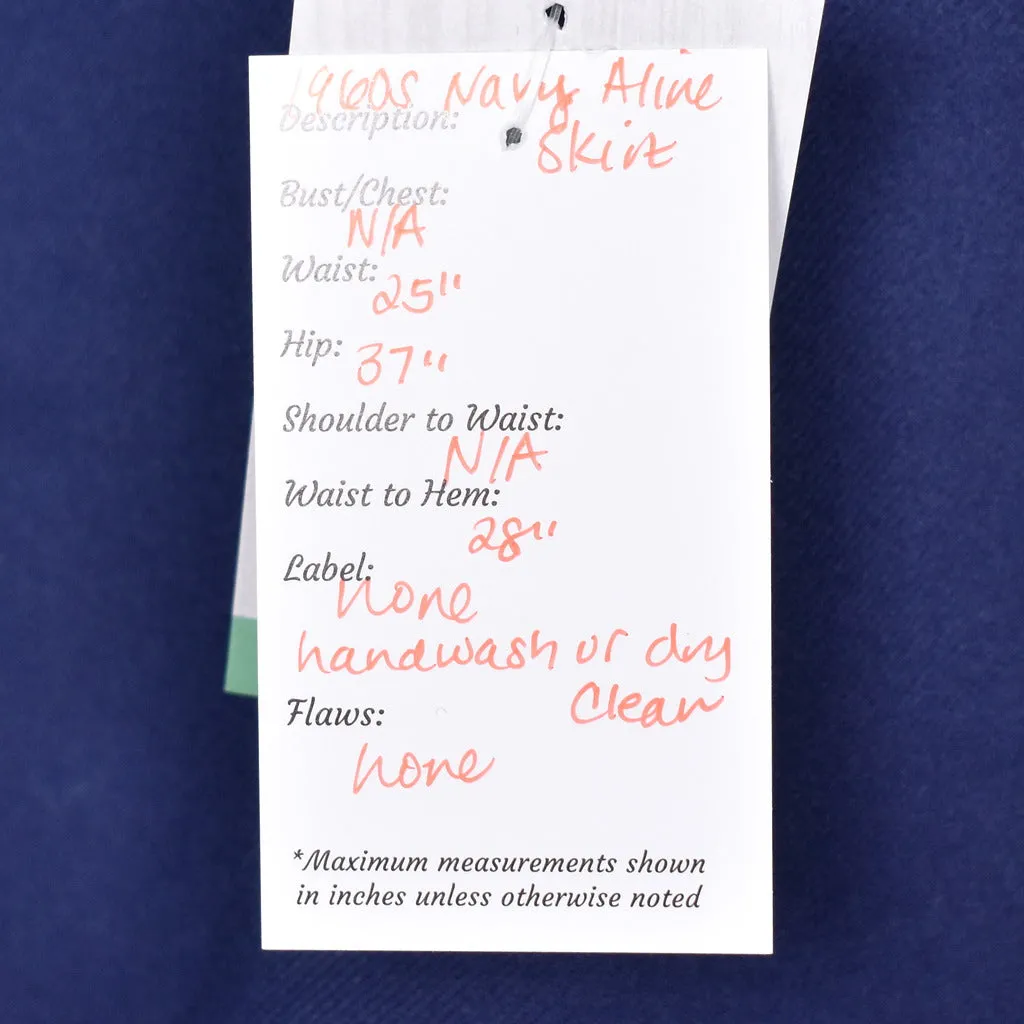 1960s Navy Aline
Description:
Skirt
Bust/Chest:
N/A
Waist:
25"
Hip: 37"
Shoulder to Waist:
N/A
Waist to Hem:
28"
Label:
none
handwash or dry
Clean
Flaws:
none
*Maximum measurements shown
in inches unless otherwise noted